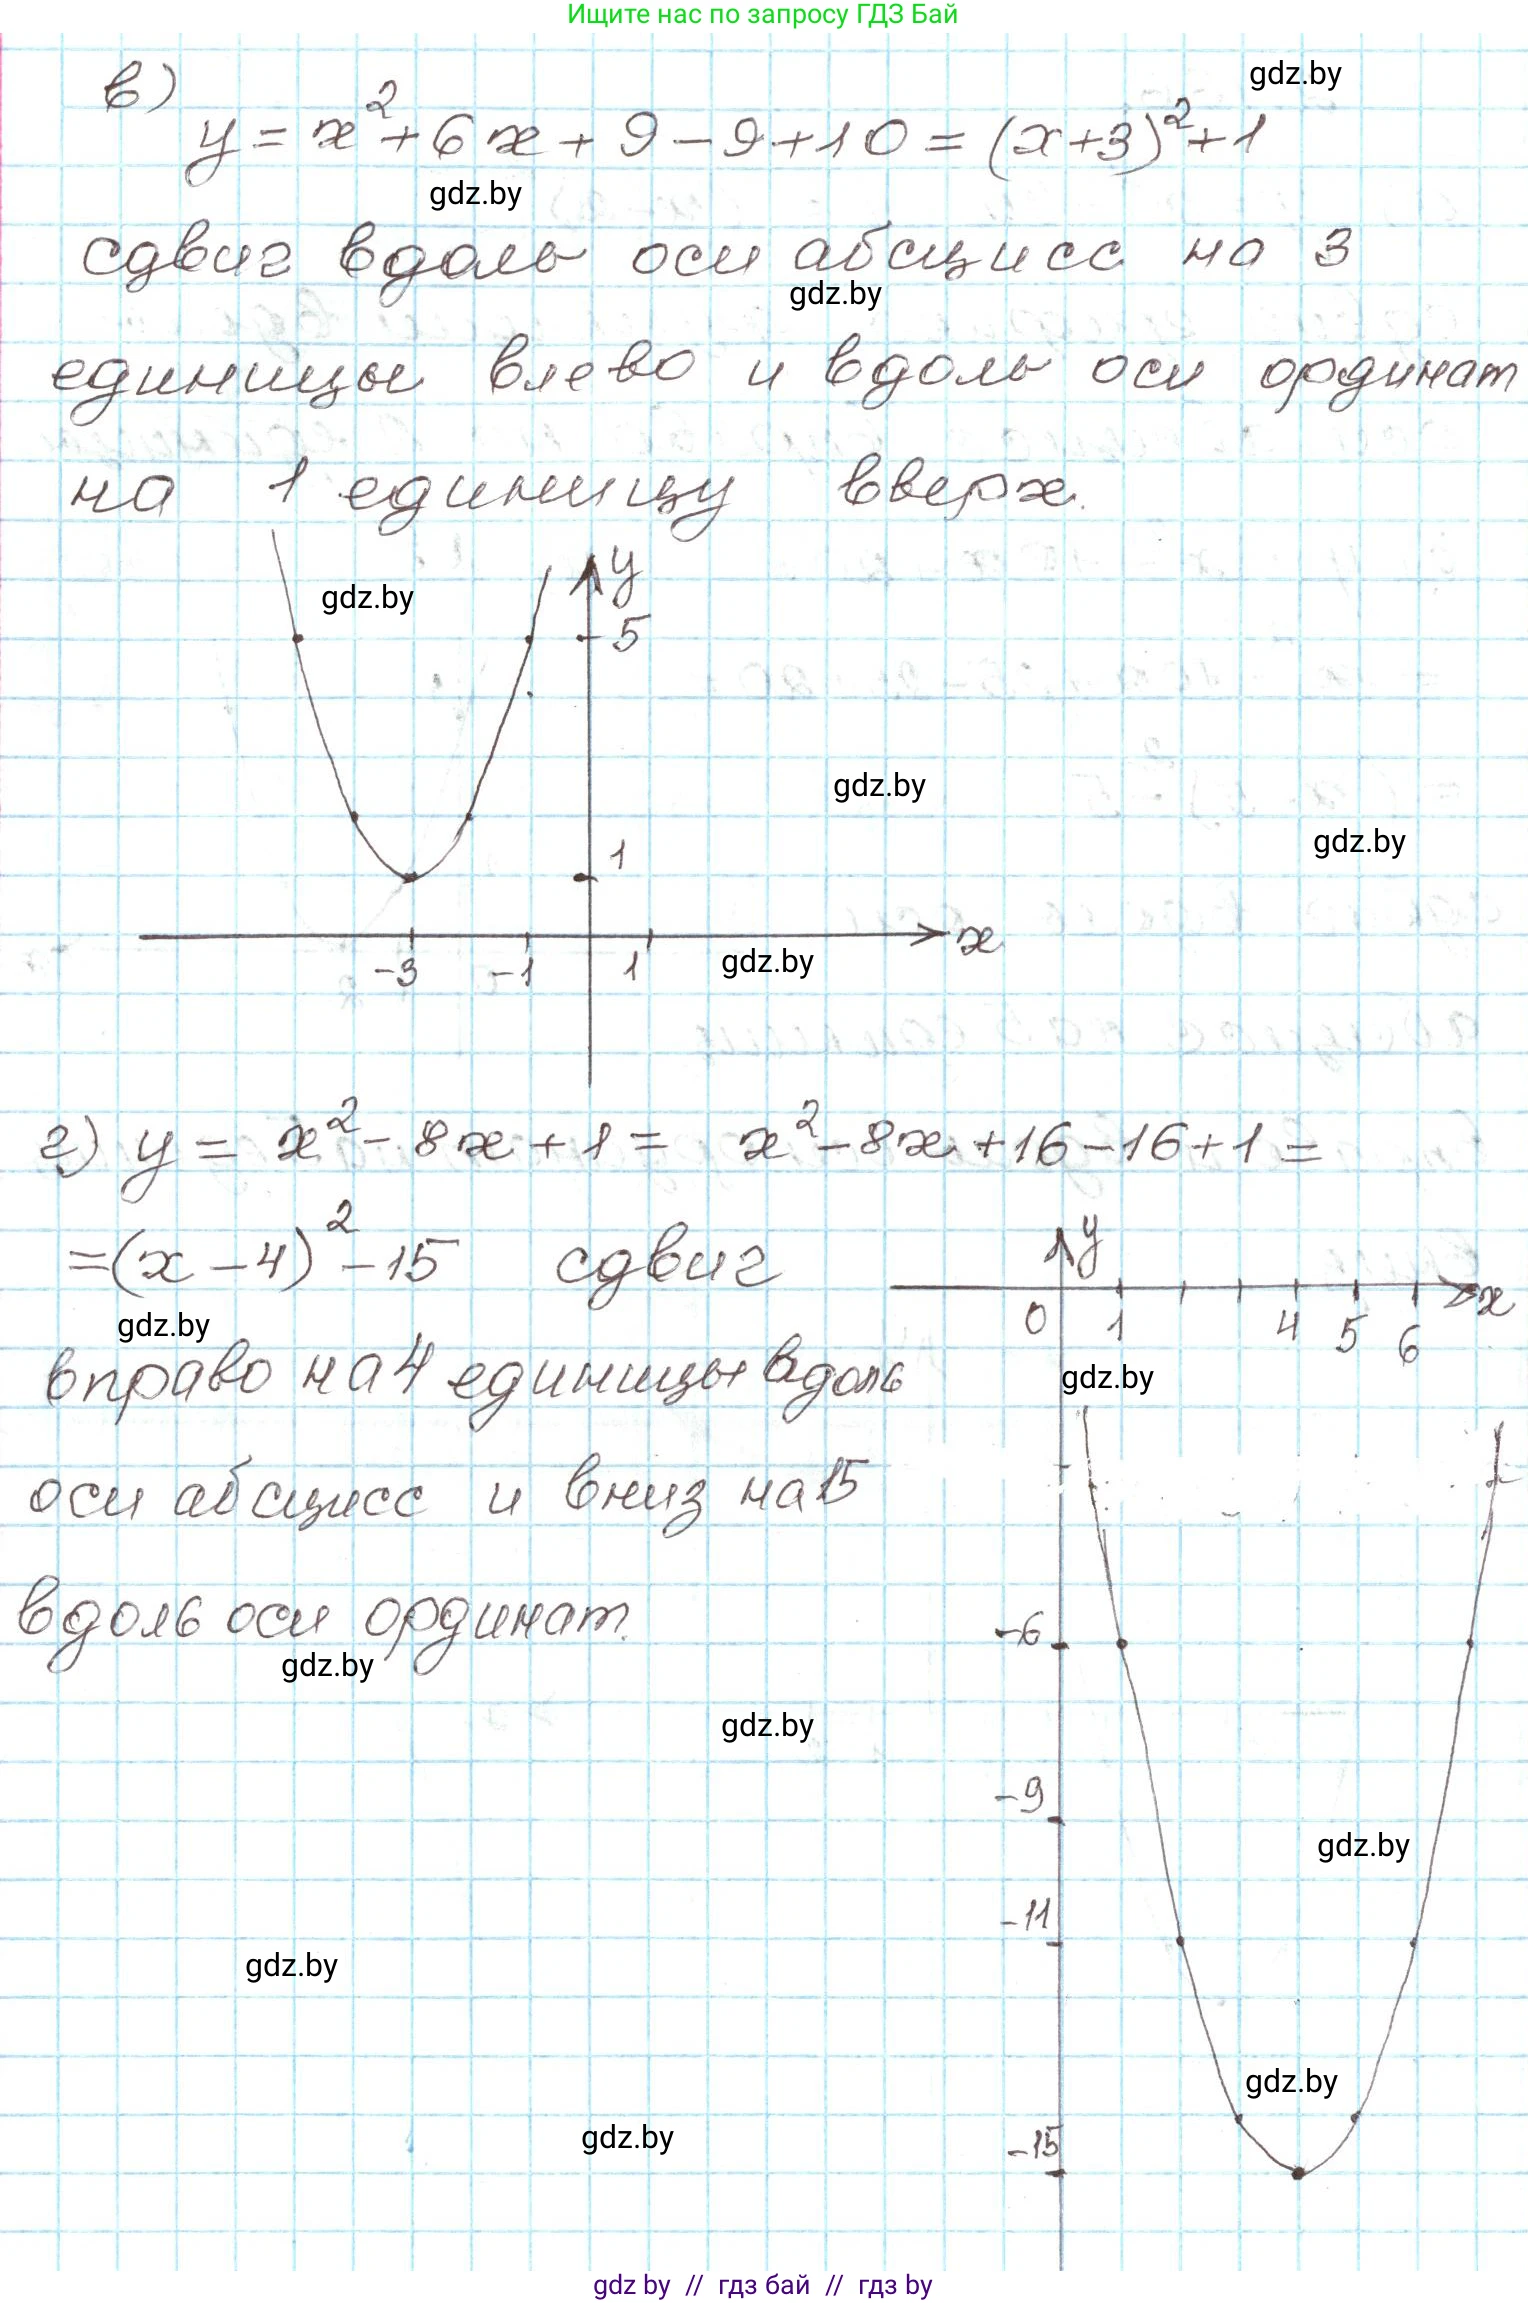 Ищите нас по запросу ГДЗ Бай
gdz.by
в)
y = x² + 6x + 9 - 9 + 10 = (x+3)² + 1
gdz.by
сдвиг вдоль оси абсцисс на 3
gdz.by
единицы влево и вдоль оси ординат
на 1 единицу вверх.
y
gdz.by
5
gdz.by
gdz.by
1
x
-3 -1 1
gdz.by
г) y = x² - 8x + 1 = x² - 8x + 16 - 16 + 1 =
= (x - 4)² - 15 сдвиг
y
x
0 1 4 5 6
gdz.by
вправо на 4 единицы вдоль
gdz.by
оси абсцисс и вниз на 15
вдоль оси ординат.
-6
gdz.by
gdz.by
-9
gdz.by
-11
gdz.by
gdz.by
gdz.by
-15
gdz by // гдз бай // гдз by